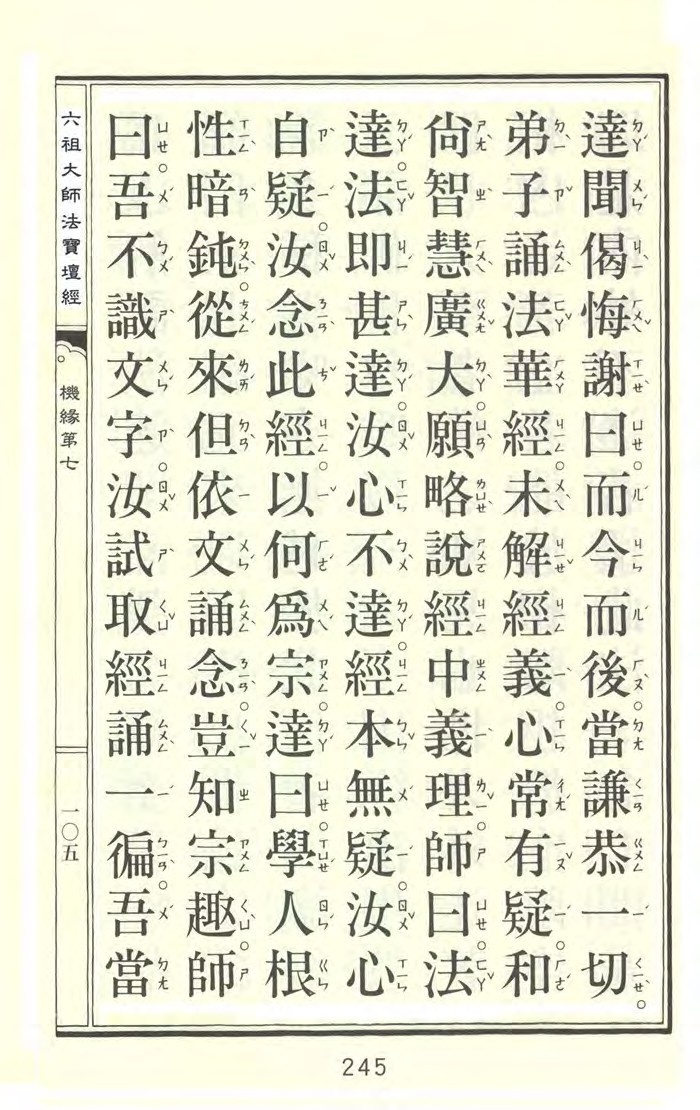 達聞偈悔謝曰。而今而後當謙恭一切。
弟子誦法華經。未解經義。心常有疑。和
尚智慧廣大。願略說經中義理。師曰。法
達。法即甚達。汝心不達。經本無疑。汝心
自疑。汝念此經。以何爲宗。達曰。學人根
性暗鈍。從來但依文誦念。豈知宗趣。師
曰。吾不識文字。汝試取經誦一徧。吾當
六祖大師法寶壇經
機緣第七
一〇五
245